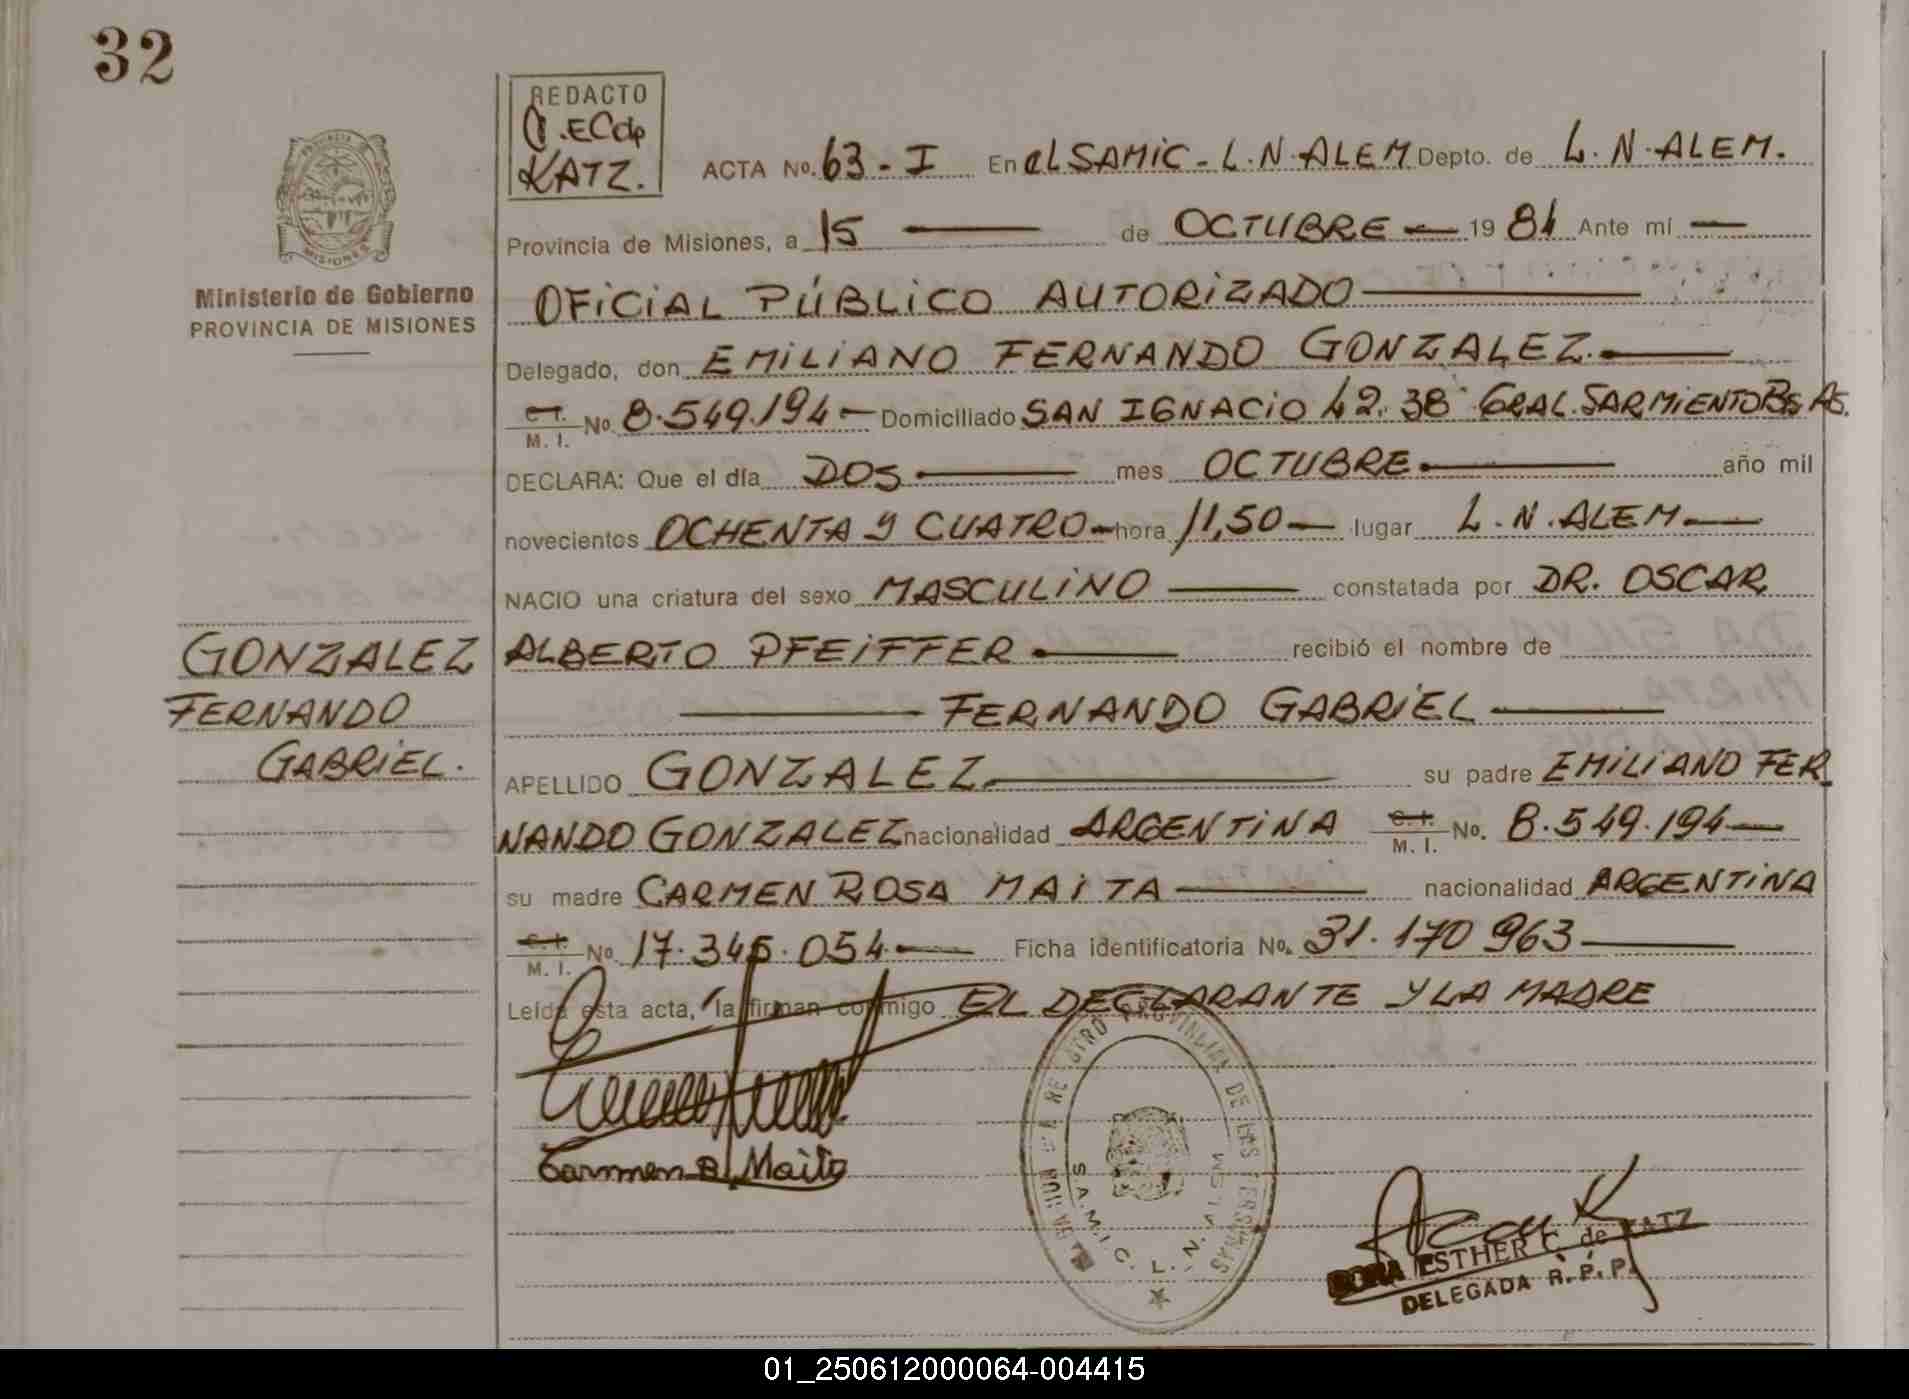 32
REDACTO
KATZ.
PROVINCIA DE
MISIONES
Ministerio de Gobierno
PROVINCIA DE MISIONES
ACTA No. 63 - I En el SAMIC - L. N. ALEM Depto. de L. N. ALEM.
Provincia de Misiones, a 15 — de OCTUBRE — 1984 Ante mí —
OFICIAL PÚBLICO AUTORIZADO —
Delegado, don EMILIANO FERNANDO GONZALEZ. —
C. I.
M. I. No. 8.549.194 — Domiciliado SAN IGNACIO 42.38 GRAL. SARMIENTO Bs As.
DECLARA: Que el día DOS — mes OCTUBRE — año mil
novecientos OCHENTA Y CUATRO — hora 11,50 — lugar L. N. ALEM —
NACIO una criatura del sexo MASCULINO — constatada por DR. OSCAR
ALBERTO PFEIFFER — recibió el nombre de
— FERNANDO GABRIEL —
GONZALEZ
FERNANDO
GABRIEL.
APELLIDO GONZALEZ — su padre EMILIANO FER
NANDO GONZALEZ nacionalidad ARGENTINA C. I.
M. I. No. 8.549.194 —
su madre CARMEN ROSA MAITA — nacionalidad ARGENTINA
C. I.
M. I. No. 17.345.054 — Ficha identificatoria No. 31.170 963 —
Leída esta acta, la firman conmigo EL DECLARANTE Y LA MADRE
Carmen R. Maita
REGISTRO PROVINCIAL DE LAS PERSONAS
S.A.M.I.C. L. N. ALEM
ESTHER C. de KATZ
DELEGADA R. P. P.
01_250612000064-004415